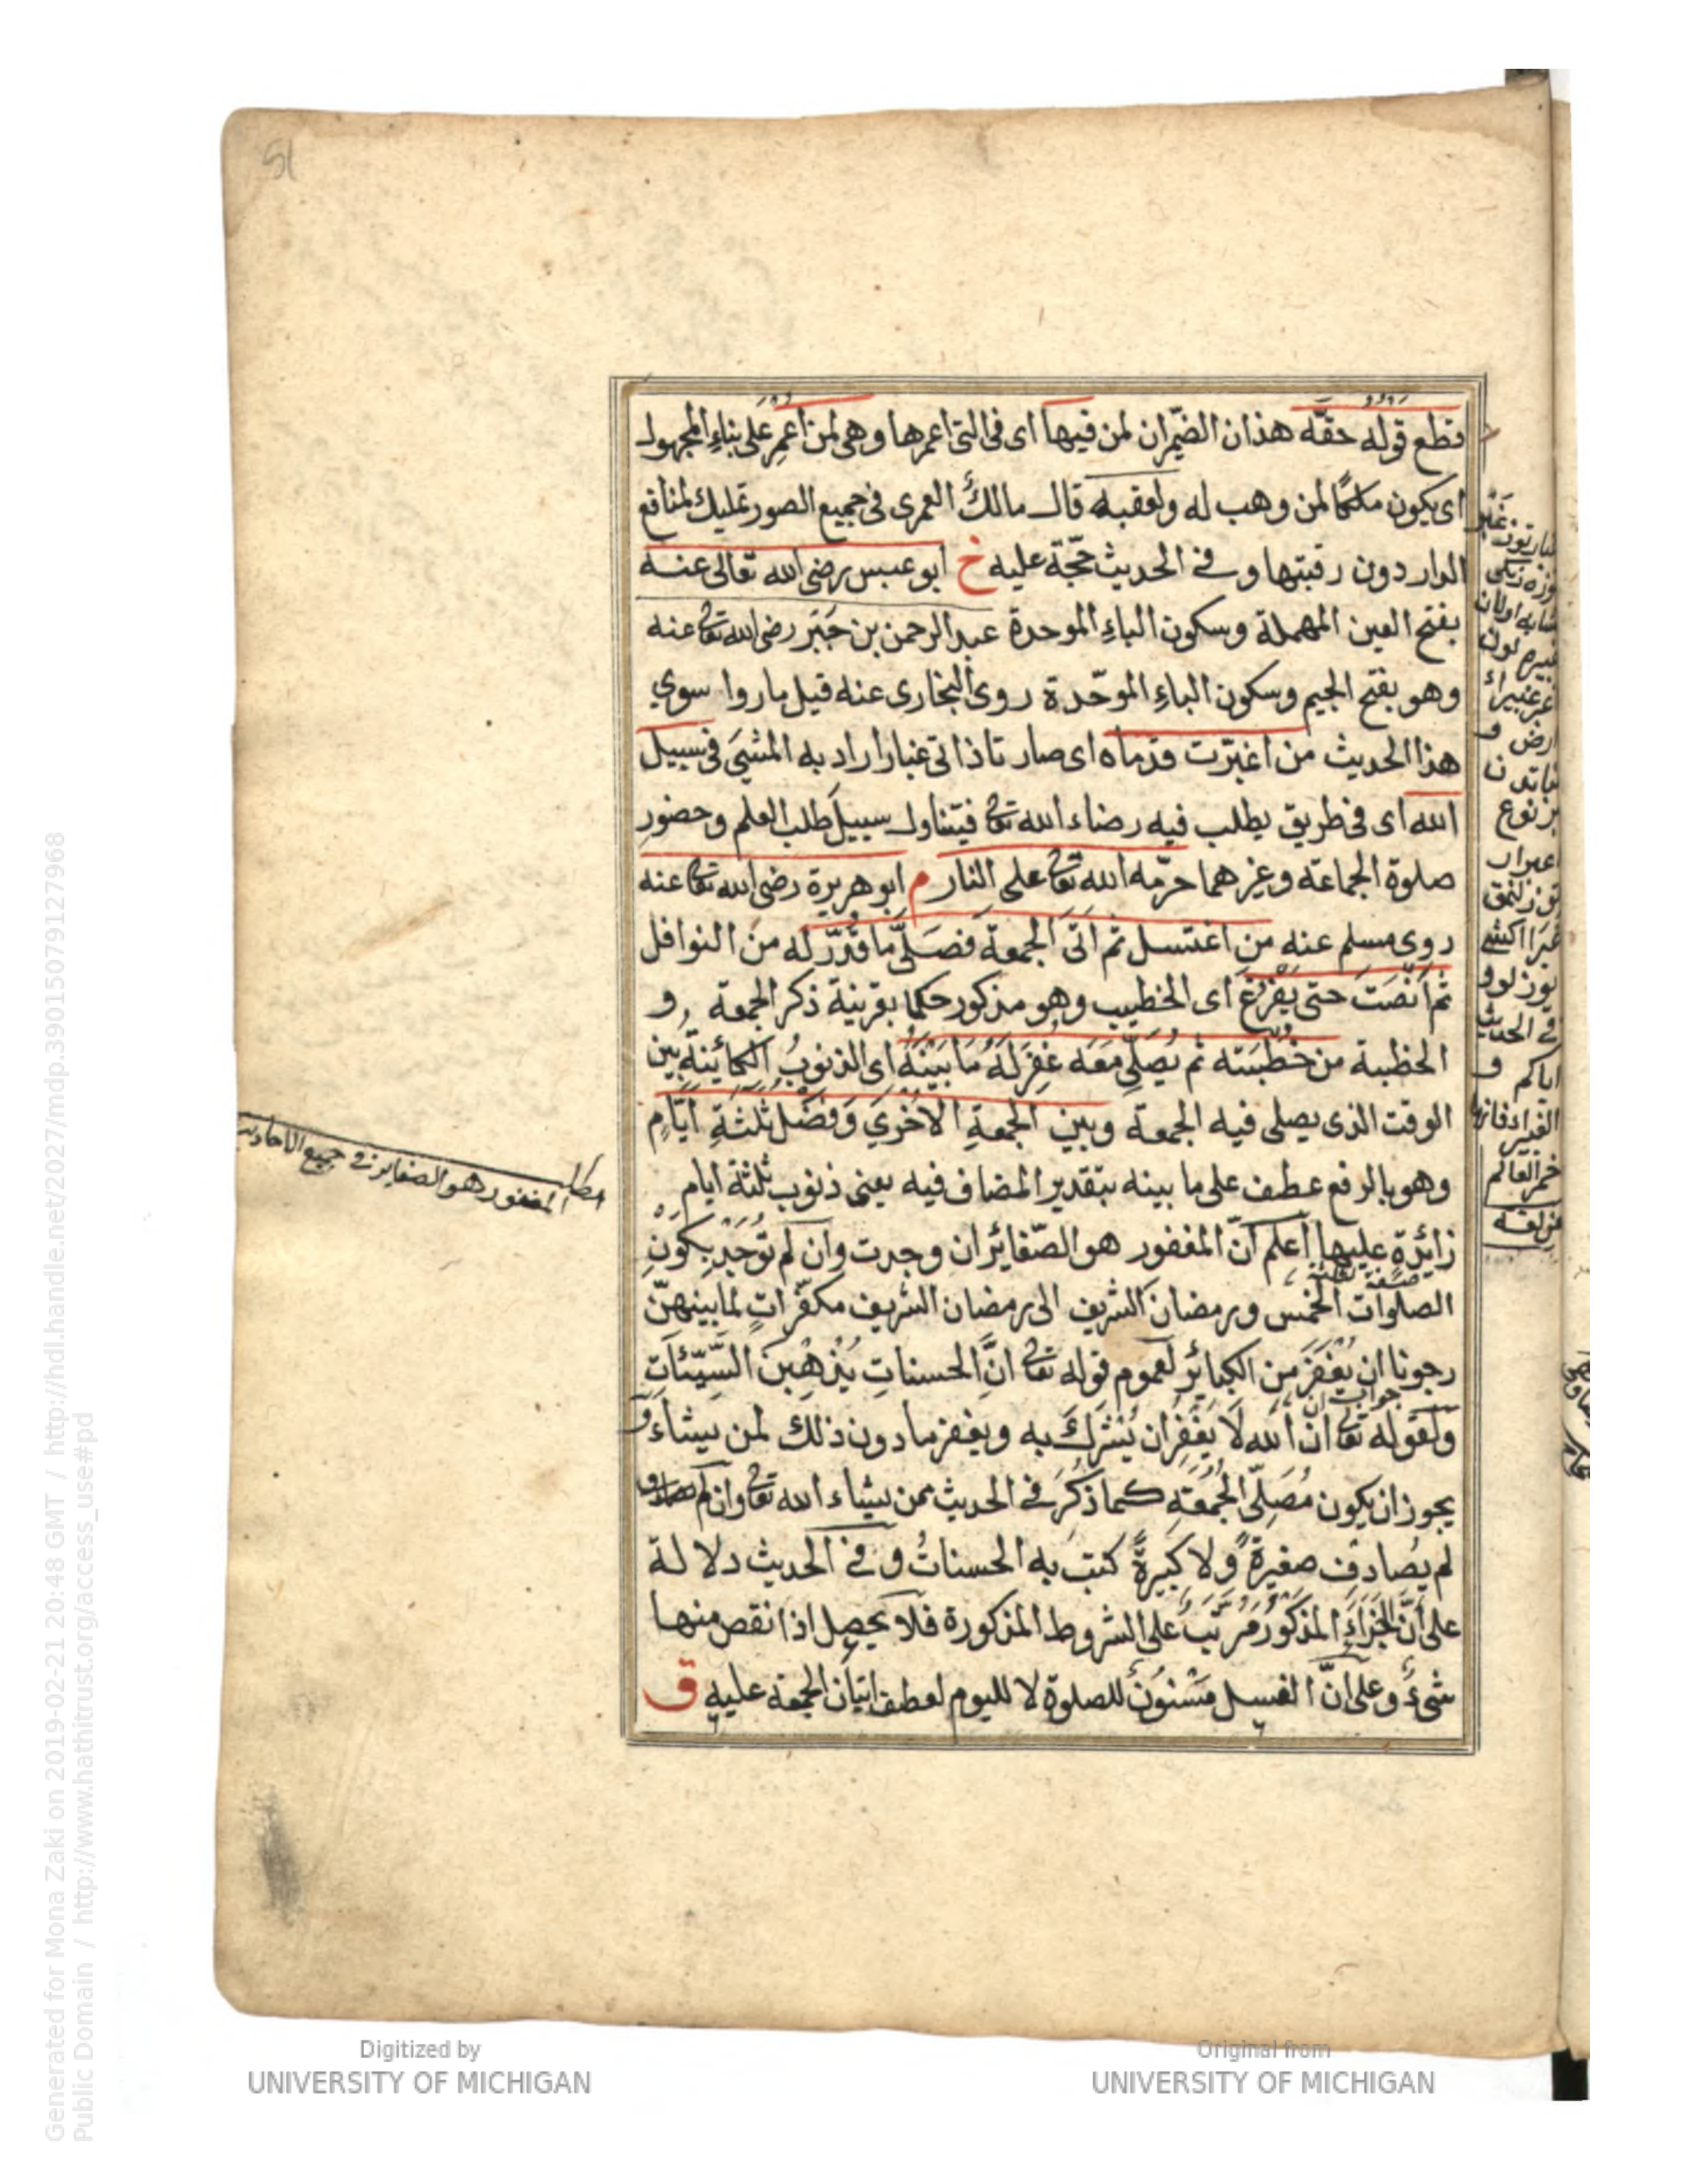 51
فقطع قوله حقّه هذان الضميران لمن فيها اى فى التى اعمرها وهى لمن اُعمِر على بناء المجهول
اى يكون ملكًا لمن وهب له ولعقبه قال مالكُ العمرى فى جميع الصور تمليك لمنافع
الدار دون رقبتها وفى الحديث حجّة عليه خ ابو عبس رضى الله تعالى عنه
بفتح العين المهملة وسكون الباءِ الموحدة عبد الرحمن بن جَبْر رضى الله تعا عنه
وهو بفتح الجيم وسكون الباءِ الموحّدة روى البخارى عنه قيل ما روا سوي
هذا الحديث من اغبرّت قدماه اى صار تا ذاتى غبار اراد به المشى فى سبيل
الله اى فى طريق يطلب فيه رضاء الله تعا فيتناول سبيل طلب العلم وحضور
صلوة الجماعة وغيرهما حرّمه الله تعا على النار م ابو هريرة رضى الله تعا عنه
روى مسلم عنه من اغتسل ثم اتَى الجمعة فصَلّى ما قُدّر له من النوافل
ثم اَنْصَتَ حتى يَفْرُغَ اى الخطيب وهو مذكور حكما بقرينة ذكر الجمعة و
الخطبة من خُطْبَتِه ثم يُصَلّى مَعَه غُفِرَ لَهُ مَا بَيْنَهُ اى الذنوبُ الكائِينَةِ بين
الوقت الذى يصلى فيه الجمعة وبين الجمعةِ الاُخْرَي وَفَضْلُ ثلثةِ ايّامٍ
وهو بالرفع عطف على ما بينه بتقدير المضاف فيه يعنى ذنوب ثلثة ايام
زائِدةٍ عليها اعلم انّ المغفور هو الصّغائر ان وجدت وان لم تُوْجَد بكَوْن
الصلوات الخمس ورمضان الشريف الى رمضان الشريف مكفّراتٍ لما بينهنّ
رجونا ان يُغْفَرَ من الكبائر لعموم قوله تعا انّ الحسناتِ يُذْهِبْنَ السَّيّئَاتِ
جواب ان
ولقوله تعا انّ الله لَا يَغْفِرُ ان يُشْرَكَ به ويغفر ما دون ذلك لمن يشاء و
يجوز ان يكون مُصَلّى الجُمُعَةِ كما ذُكِرَ فى الحديث ممن يشاء الله تعا وان
لم يصُادِف صغيرةً ولا كَبِيرةً كتبَ به الحسناتُ وفى الحديث دلالة
على أنّ الجَزَاءَ المذكورَ مُرَتَّبٌ على الشروط المذكورة فلا يحصل اذا نقص منها
شىءٌ وعلى انّ الغسل مَسْنُونٌ للصلوة لا لليوم لعطف اتيان الجمعة عليه ق
مطلب
المغفور هو الصغاير فى جميع الاحاديث
فى الحديث
اياكم و
الغبيراء فانها
خمر العالم
Generated for Mona Zaki on 2019-02-21 20:48 GMT / http://hdl.handle.net/2027/mdp.39015079127968
Public Domain / http://www.hathitrust.org/access_use#pd
Digitized by
UNIVERSITY OF MICHIGAN
Original from
UNIVERSITY OF MICHIGAN